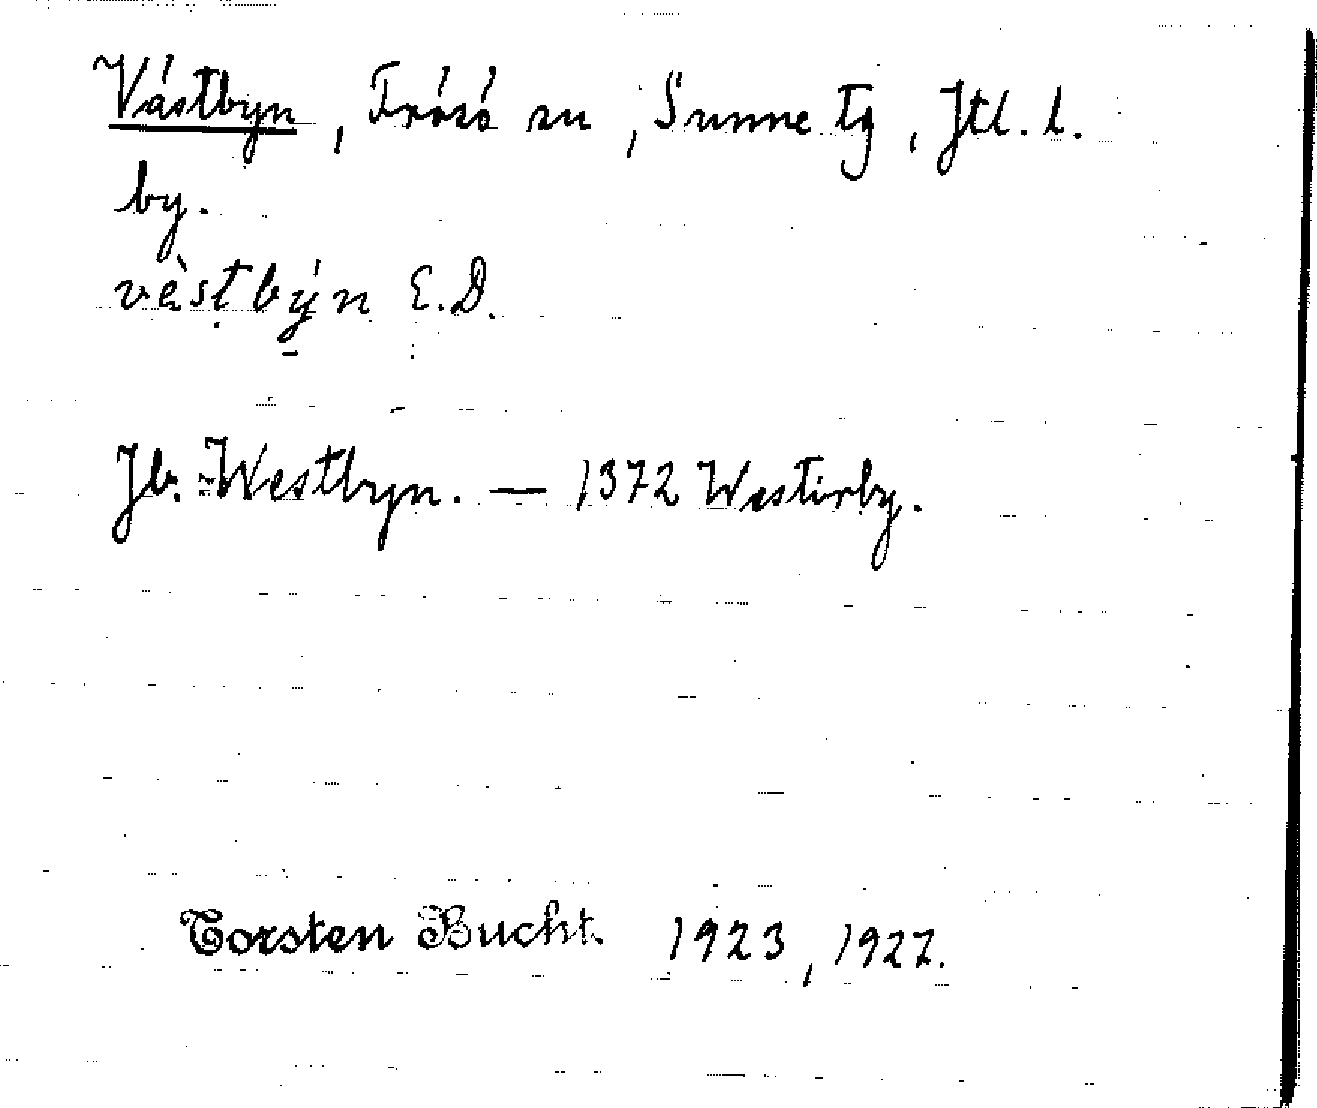 Västbyn, Frösö sn, Sunne tg, Jtl. l.
by.
vèstbýn E.D.
Jb. Westbyn. — 1372 Westirby.
Torsten Bucht. 1923, 1927.